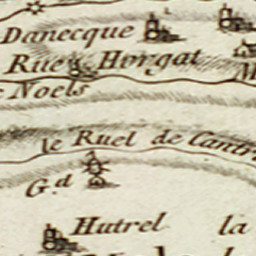 Danecque
Rue Horgat
Noels
le Ruel de Cantr
G.d
Hutrel la